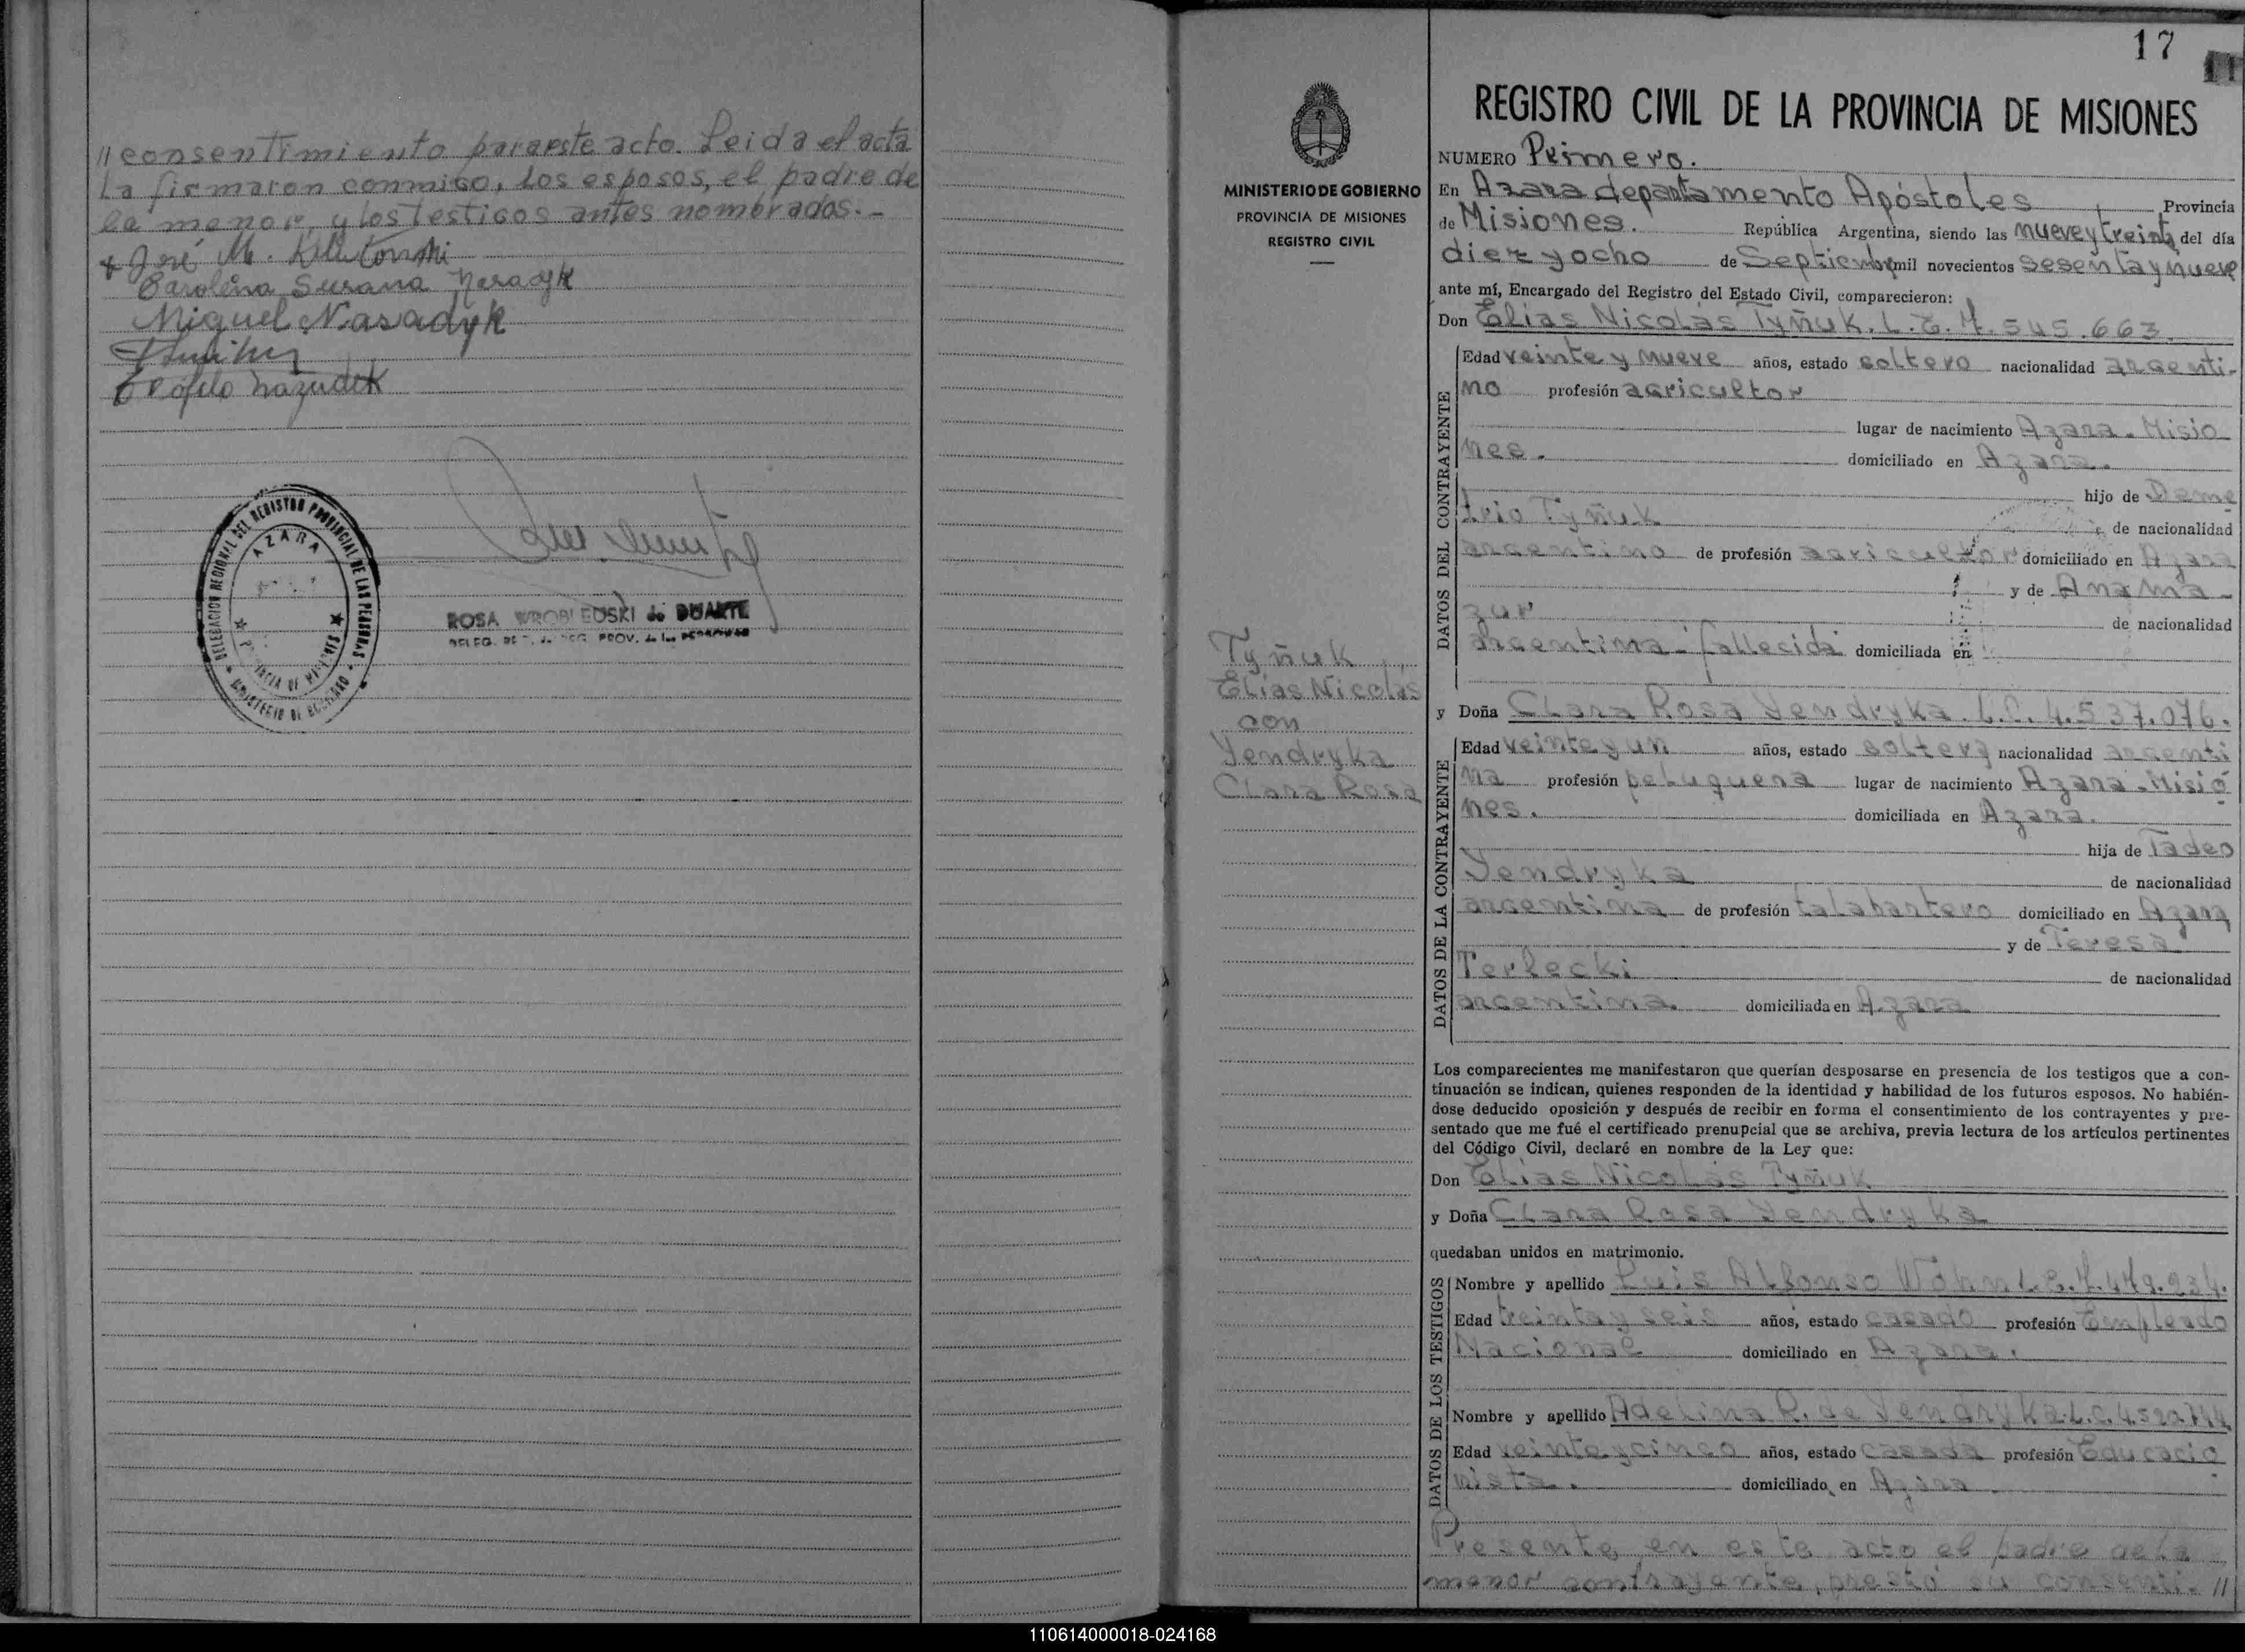 // consentimiento para este acto. Leida el acta
la firmaron conmigo, los esposos, el padre de
la menor, y los testigos antes nombrados.-
José M.
Carolina Susana Nasadyk
Miguel Nasadyk
Teófilo
DELEGACION REGIONAL DEL REGISTRO PROVINCIAL DE LAS PERSONAS
AZARA
MINISTERIO DE GOBIERNO
ROSA WROBLEUSKI de DUARTE
17
REGISTRO CIVIL DE LA PROVINCIA DE MISIONES
MINISTERIO DE GOBIERNO
PROVINCIA DE MISIONES
REGISTRO CIVIL
Tyñuk
Elias Nicolás
con
Yendryka
Clara Rosa
NUMERO Primero.
En Azara departamento Apóstoles Provincia
de Misiones. República Argentina, siendo las nueve y treinta del día
diez y ocho de Septiembre mil novecientos sesenta y nueve
ante mí, Encargado del Registro del Estado Civil, comparecieron:
Don Elias Nicolás Tyñuk. L.E. 7.545.663.
DATOS DEL CONTRAYENTE
Edad veinte y nueve años, estado soltero nacionalidad argenti-
no profesión agricultor
lugar de nacimiento Azara - Misio
nes. domiciliado en Azara.
hijo de Deme
trio Tyñuk de nacionalidad
argentino de profesión agricultor domiciliado en Azara
y de Ana Ma-
zur de nacionalidad
argentina - fallecida domiciliada en
y Doña Clara Rosa Yendryka. L.C. 4.537.076.
DATOS DE LA CONTRAYENTE
Edad veinte y un años, estado soltera nacionalidad argenti
na profesión peluquera lugar de nacimiento Azara - Misio
nes. domiciliada en Azara.
hija de Tadeo
Yendryka de nacionalidad
argentina de profesión talabartero domiciliado en Azara
y de Teresa
Terlecki de nacionalidad
argentina. domiciliada en Azara
Los comparecientes me manifestaron que querían desposarse en presencia de los testigos que a con-
tinuación se indican, quienes responden de la identidad y habilidad de los futuros esposos. No habién-
dose deducido oposición y después de recibir en forma el consentimiento de los contrayentes y pre-
sentado que me fué el certificado prenupcial que se archiva, previa lectura de los artículos pertinentes
del Código Civil, declaré en nombre de la Ley que:
Don Elias Nicolás Tyñuk
y Doña Clara Rosa Yendryka
quedaban unidos en matrimonio.
DATOS DE LOS TESTIGOS
Nombre y apellido Luis Alfonso L.E. 7.479.934.
Edad treinta y seis años, estado casado profesión Empleado
Nacional domiciliado en Azara.
Nombre y apellido Adelina R. de Yendryka. L.C.
Edad veinte y cinco años, estado casada profesión Educacio
nista. domiciliado en Azara
Presente en este acto el padre de la
menor contrayente, prestó su consenti- //
110614000018-024168